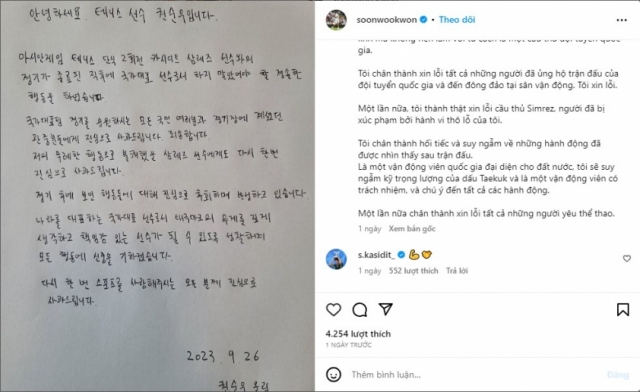 안녕하세요. 테니스 선수 권순우입니다.
아시안게임 테니스 단식 2회전 카시디트 삼레즈 선수와의
경기가 종료된 직후에 국가대표 선수로서 하지 말았어야 할 경솔한
행동을 하였습니다.
국가대표팀 경기를 응원하시는 모든 국민 여러분과 경기장에 계셨던
관중분들에게 진심으로 사과드립니다. 죄송합니다
저의 무례한 행동으로 불쾌했을 삼레즈 선수에게도 다시 한번
진심으로 사과드립니다.
경기 후에 보인 행동들에 대해 진심으로 후회하며 반성하고 있습니다.
나라를 대표하는 국가대표 선수로서 태극마크의 무게를 깊게
생각하고 책임감 있는 선수가 될 수 있도록 성찰하며
모든 행동에 신중을 기하겠습니다.
다시 한 번 스포츠를 사랑해주시는 모든 분께 진심으로
사과드립니다.
2023. 9. 26
권순우 올림
soonwookwon • Theo dõi
gia.
Tôi chân thành xin lỗi tất cả những người đã ủng hộ trận đấu của
đội tuyển quốc gia và đến đông đảo tại sân vận động. Tôi xin lỗi.
Một lần nữa, tôi thành thật xin lỗi cầu thủ Simrez, người đã bị
xúc phạm bởi hành vi thô lỗ của tôi.
Tôi chân thành hối tiếc và suy ngẫm về những hành động đã
được nhìn thấy sau trận đấu.
Là một vận động viên quốc gia đại diện cho đất nước, tôi sẽ suy
ngẫm kỹ trọng lượng của dấu Taekuk và là một vận động viên có
trách nhiệm, và chú ý đến tất cả các hành động.
Một lần nữa chân thành xin lỗi tất cả những người yêu thể thao.
1 ngày Xem bản gốc
s.kasidit_ 💪🧡
1 ngày 552 lượt thích Trả lời
4.254 lượt thích
1 NGÀY TRƯỚC
Thêm bình luận... Đăng